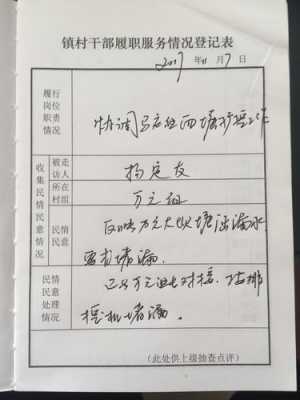 镇村干部履职服务情况登记表
2017年11月7日
履行
岗位
职责
情况
协调马店组四塘扩挖工作
收集民情民意情况
被走
访人
杨定友
所在
村组
万元组
民情
民意
反映万元大队塘涵漏水,
要求堵漏.
民情
民意
处理
情况
已与万元组长对接,安排
挖机堵漏.
(此处供上级抽查点评)